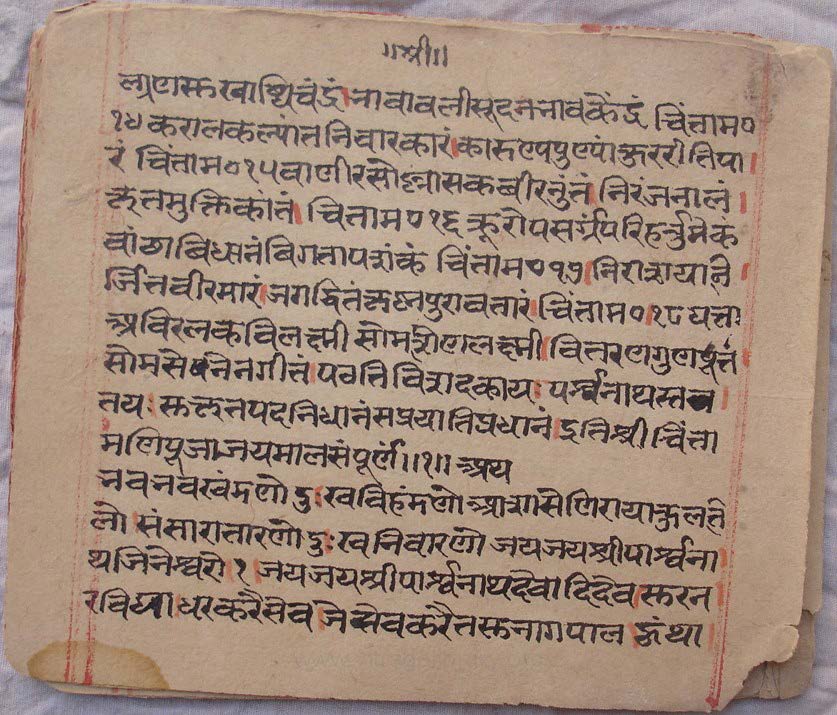 ॥श्री॥
ल्याणसुखाब्धिचंद्रं।नावावलीसूदननावकेंद्रं चिंताम०
१४ करालकल्पांतनिवारकारं।कारुण्यपुण्यांकुररीतिपा
रं चिंताम०१५ वाणीरसोल्लासकबीरनुंतं निरंजनालं
कृतमुक्तिकांतं चिंताम० १६ क्रूरोपसर्ग्गपरिहर्त्तुमेकं
वांछाविधानंविगतापशंकं चिंताम०१७ निरामयानि
र्जितवीरमारं।जगद्धितंकृष्नपुरावतारं चिंताम०१८ घत्ता
अविरलकविलक्ष्मी सोमश्रीणलक्ष्मी।वितरणगुणपूतं
सोमसेनेनगीतं।पठतिविशदकायः पर्श्वनाथस्तव
तयः सुकृतपदनिधानंसप्रयातिप्रधानं इतिश्रीचिंता
मणिपूजाजयमालसंपूर्णं॥१॥ अथ
नवनवखंमणोदुःखविहंमणोआशासेणिरायाकुलति
लो संसारातारणोदुःखनिवारणो जयजयश्रीपार्श्वना
थजिनेश्वरो १ जयजयश्रीपार्श्वनाथदेवादिदेव सुरन
रविद्याधरकरैसेव जिसेवकरैतसुनागपाल कुंथा